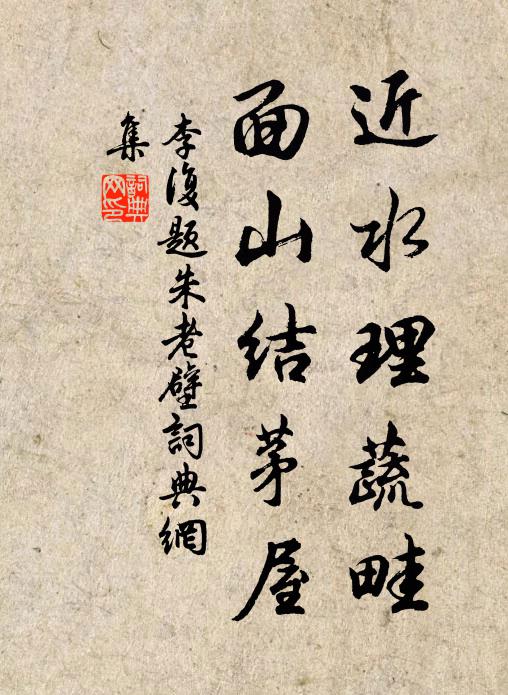 近水理蔬畦
面山结茅屋
李復题朱老壁詞典網
集
詞典網印